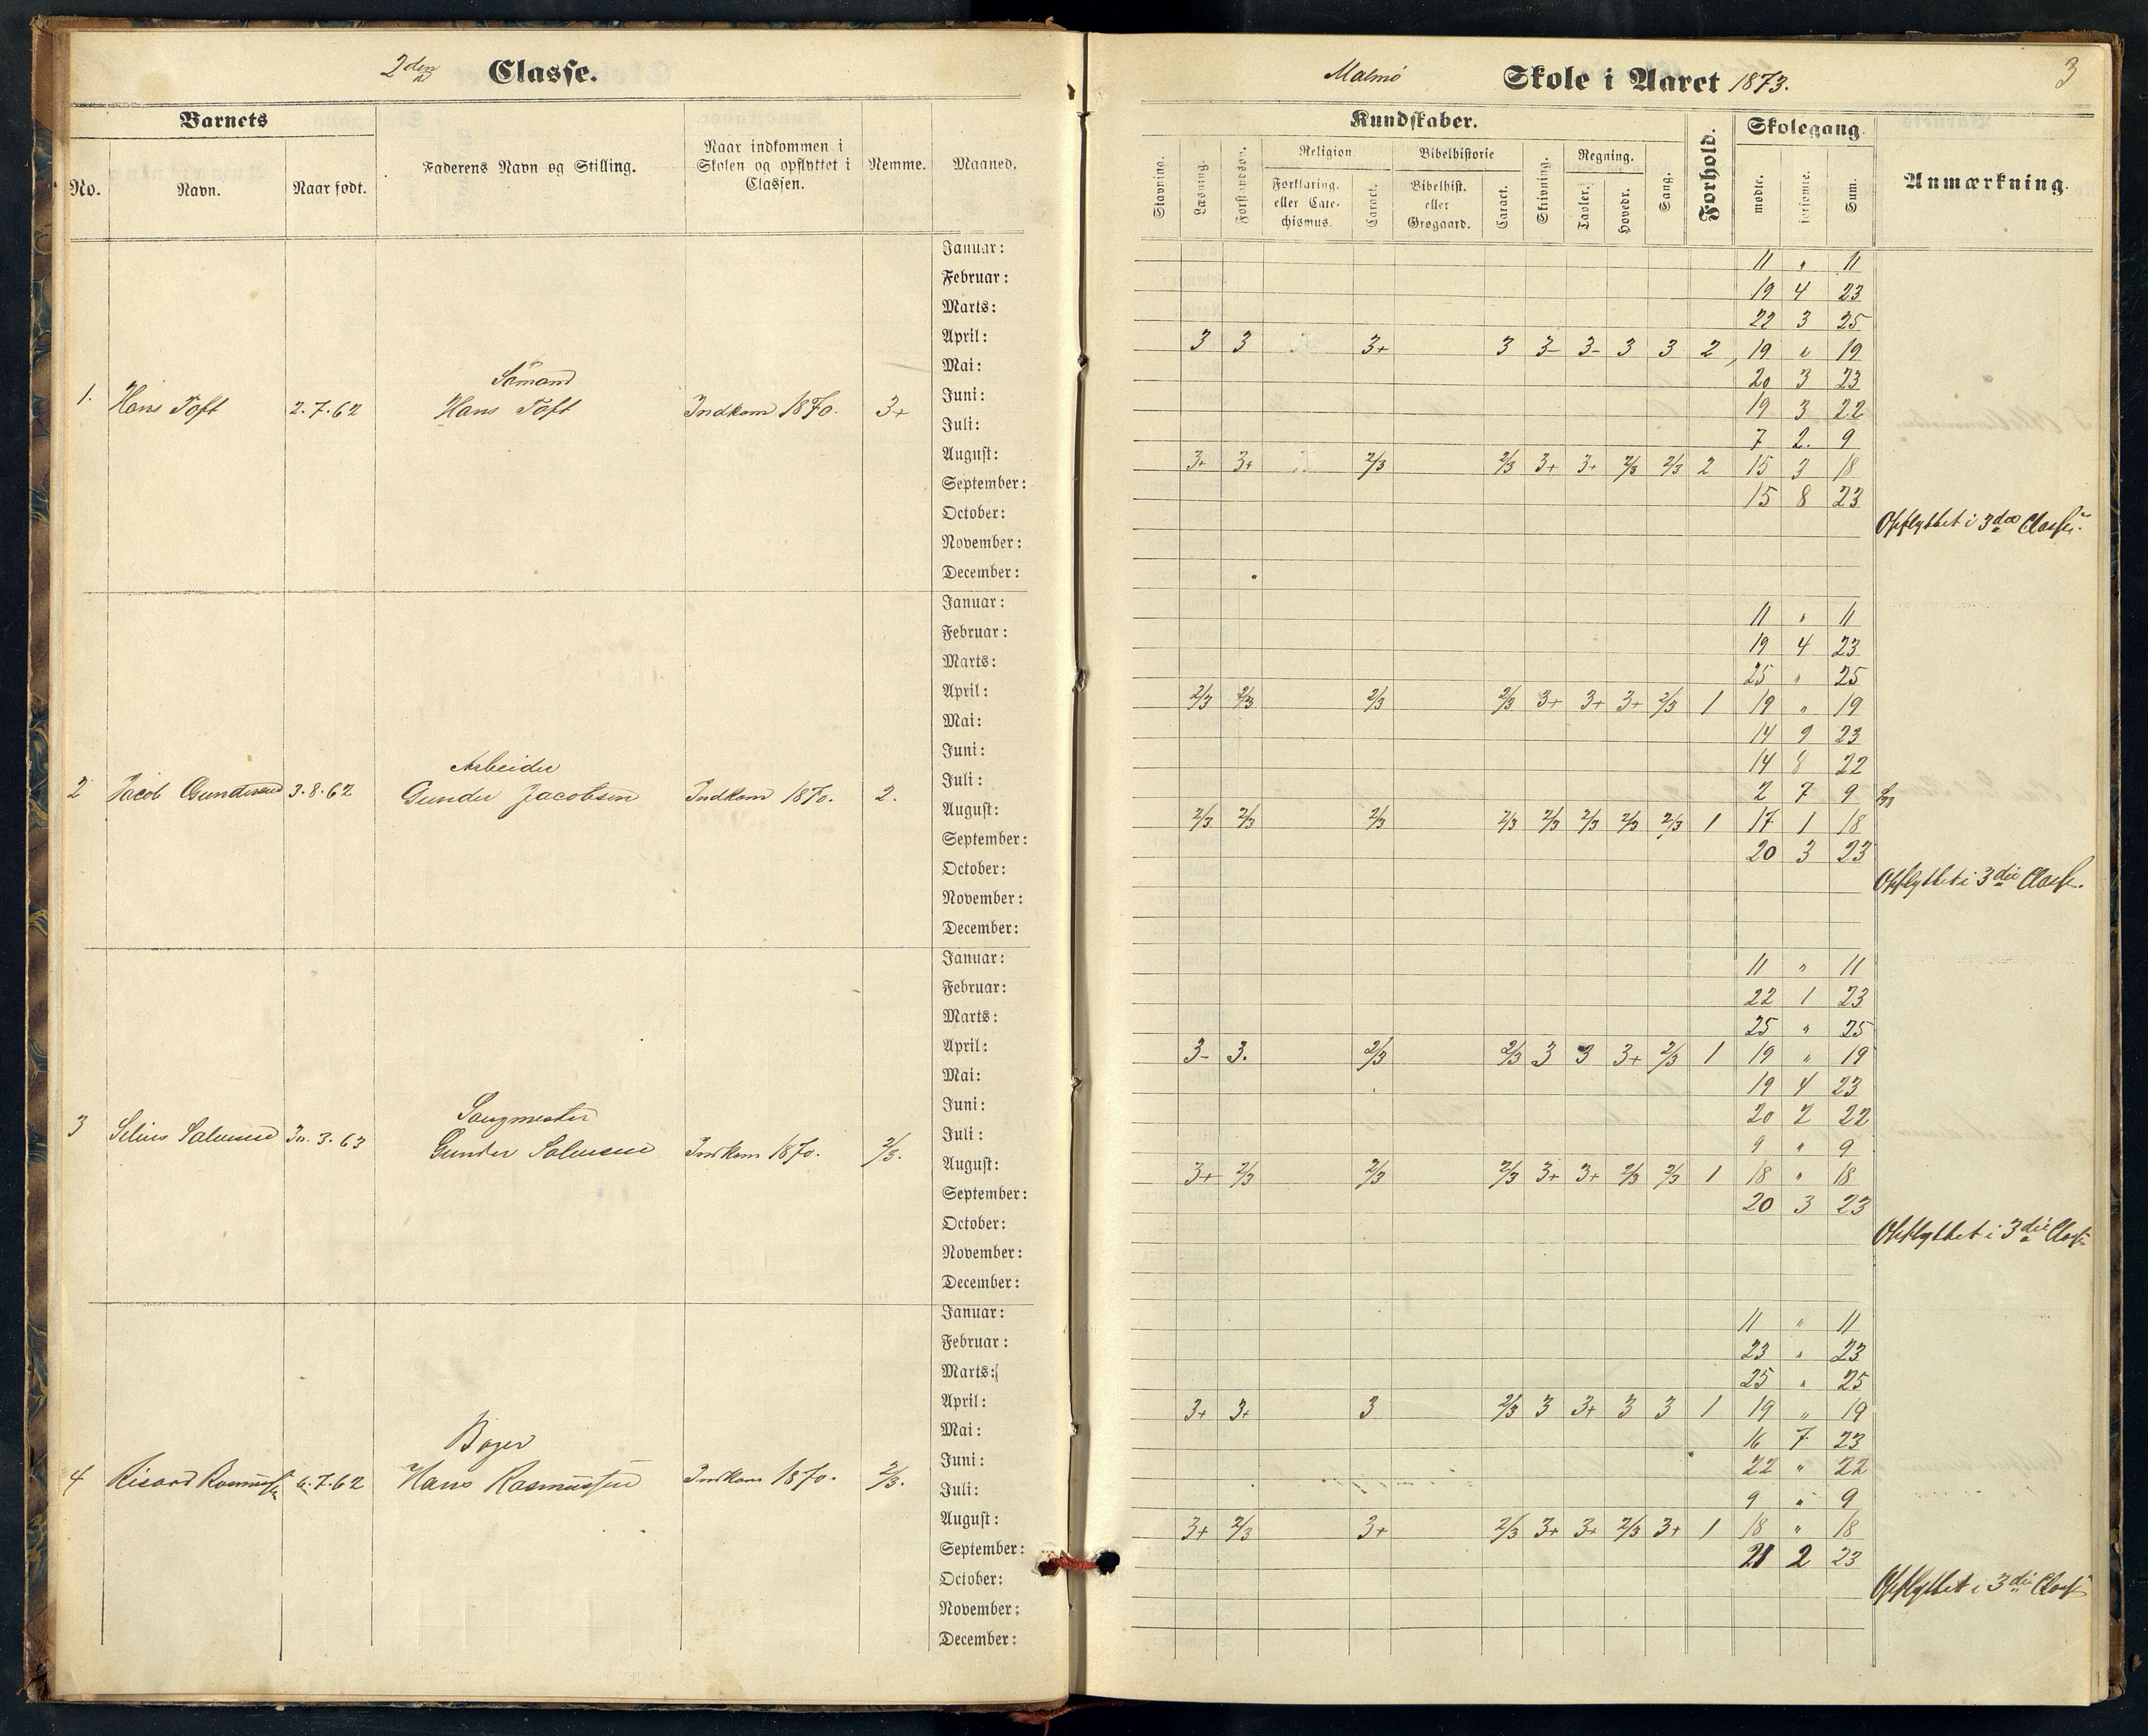 2den Classe.
Barnets
No.
Navn.
Naar født.
Faderens Navn og Stilling.
Naar indkommen i
Skolen og opflyttet i
Classen.
Nemme.
Maaned.
1. Hans Toft 2.7.62
Sømand
Hans Toft
Indkom 1870. 3+
Januar:
Februar:
Marts:
April:
Mai:
Juni:
Juli:
August:
September:
October:
November:
December:
2 Jacob Gundersen 3.8.62
Arbeider
Gunder Jacobsen
Indkom 1870. 2.
Januar:
Februar:
Marts:
April:
Mai:
Juni:
Juli:
August:
September:
October:
November:
December:
3
Gunder
Indkom 1870. 2/3.
Januar:
Februar:
Marts:
April:
Mai:
Juni:
Juli:
August:
September:
October:
November:
December:
4 Rasmussen 6.7.62
Hans Rasmussen
Indkom 1870. 2/3.
Januar:
Februar:
Marts:
April:
Mai:
Juni:
Juli:
August:
September:
October:
November:
December:
Malmø Skole i Aaret 1873.
3
Kundskaber.
Forhold.
Skolegang.
Anmærkning.
Stavning.
Læsning.
Religion.
Forklaring.
eller Cate-
chismus.
Caract.
Bibelhistorie
Bibelhist.
eller
Grøgaard.
Caract.
Skrivning.
Regning.
Tavler.
Hovedr.
Sang.
mødte.
forsømte.
Sum.
11 " 11
19 4 23
22 3 25
3 3 3+ 3 3- 3- 3 3 2 19 " 19
20 3 23
19 3 22
7 2. 9
3+ 3+ 2/3 2/3 3+ 3+ 2/3 2/3 2 15 3 18
15 8 23
Opflyttet i 3die Classe.
11 " 11
19 4 23
25 " 25
2/3 2/3 2/3 2/3 3+ 3+ 3+ 2/3 1 19 " 19
14 9 23
14 8 22
2 7 9
2/3 2/3 2/3 2/3 2/3 2/3 2/3 2/3 1 17 1 18
20 3 23
Opflyttet i 3die Classe.
11 " 11
22 1 23
25 " 25
3- 3. 2/3 2/3 3 3 3+ 2/3 1 19 " 19
19 4 23
20 2 22
9 " 9
3+ 2/3 2/3 2/3 3+ 3+ 2/3 2/3 1 18 " 18
20 3 23
Opflyttet i 3die Classe
11 " 11
23 " 23
25 " 25
3+ 3+ 3 2/3 3 3+ 3 3 1 19 " 19
16 7 23
22 " 22
9 " 9
3+ 2/3 3+ 2/3 3+ 3+ 2/3 3+ 1 18 " 18
21 2 23
Opflyttet i 3die Classe